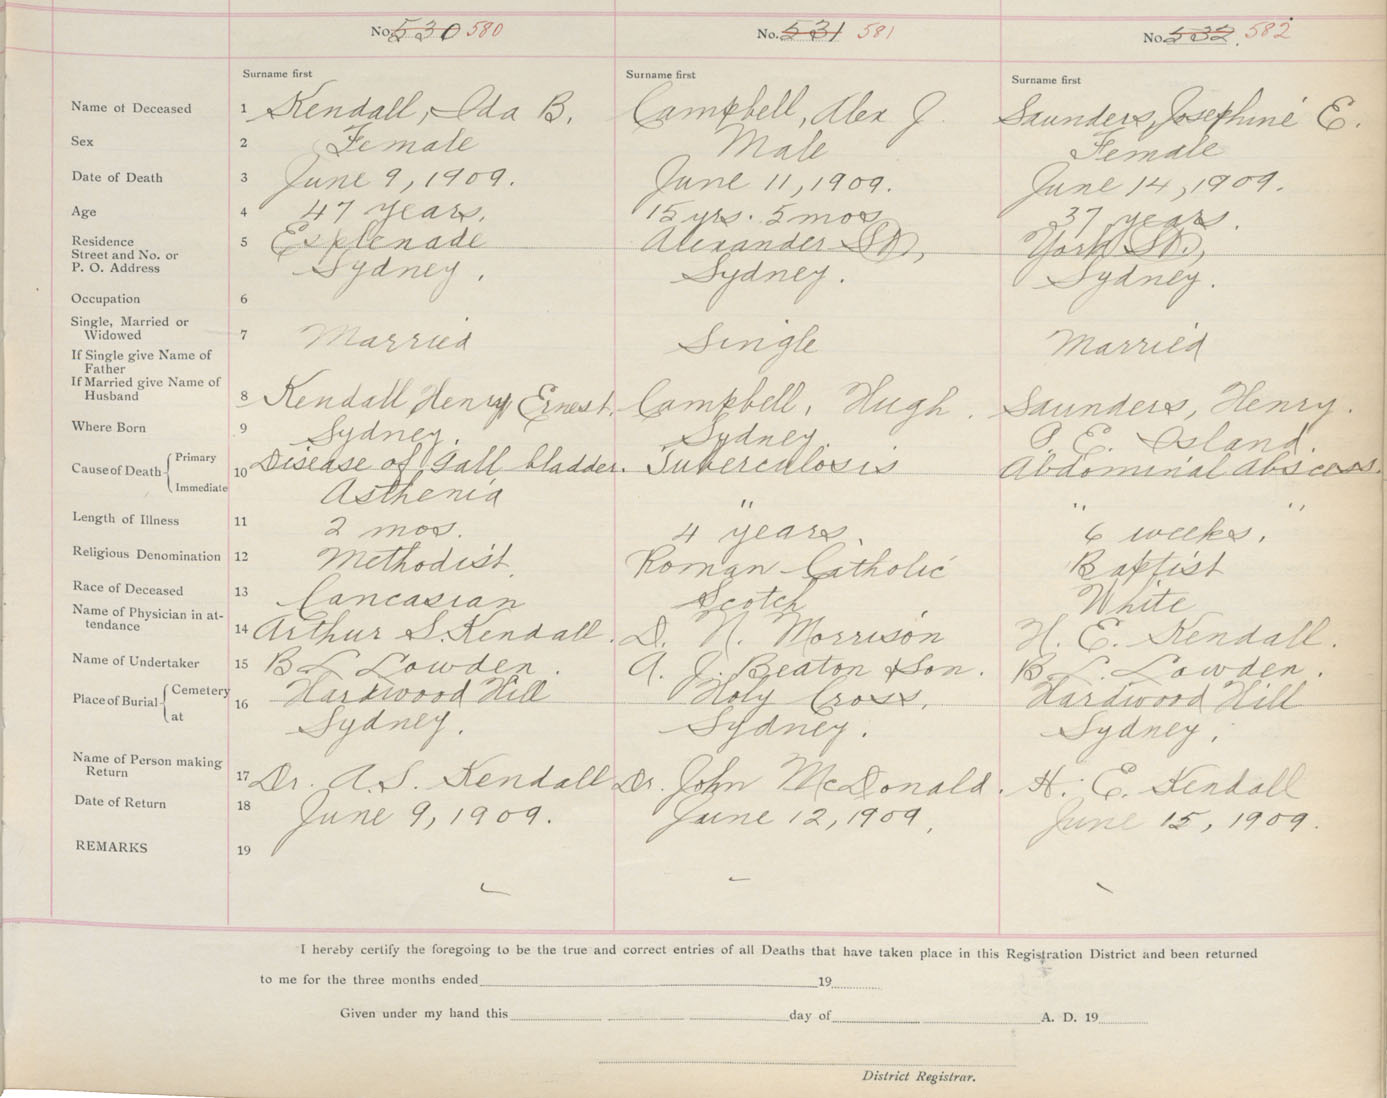 No. 530 580 No. 531 581 No. 532. 582
Surname first Surname first Surname first
Name of Deceased 1 Kendall, Ida B. Campbell, Alex J. Saunders, Josephine E.
Sex 2 Female Male Female
Date of Death 3 June 9, 1909. June 11, 1909. June 14, 1909.
Age 4 47 years. 15 yrs. 5 mos 37 years.
Residence 5 Esplenade Alexander St., York St.,
Street and No. or
P. O. Address Sydney. Sydney. Sydney.
Occupation 6
Single, Married or
Widowed 7 Married Single Married
If Single give Name of
Father
If Married give Name of
Husband 8 Kendall Henry Ernest. Campbell, Hugh. Saunders, Henry.
Where Born 9 Sydney. Sydney. P. E. Island.
Cause of Death Primary 10 Disease of Gall bladder. Tuberculosis Abdominal Abscess.
Immediate Asthenia " " "
Length of Illness 11 2 mos. 4 years. 6 weeks.
Religious Denomination 12 Methodist. Roman Catholic Baptist
Race of Deceased 13 Cancasian Scotch White
Name of Physician in at-
tendance 14 Arthur S. Kendall. D. N. Morrison H. E. Kendall.
Name of Undertaker 15 B L Lowden. A. J. Beaton & Son. B. L. Lowden.
Place of Burial Cemetery 16 Hardwood Hill Holy Cross. Hardwood Hill
at Sydney. Sydney. Sydney.
Name of Person making
Return 17 Dr. A. S. Kendall Dr. John McDonald. H. E. Kendall
Date of Return 18 June 9, 1909. June 12, 1909. June 15, 1909.
REMARKS 19
I hereby certify the foregoing to be the true and correct entries of all Deaths that have taken place in this Registration District and been returned
to me for the three months ended 19
Given under my hand this day of A. D. 19
District Registrar.